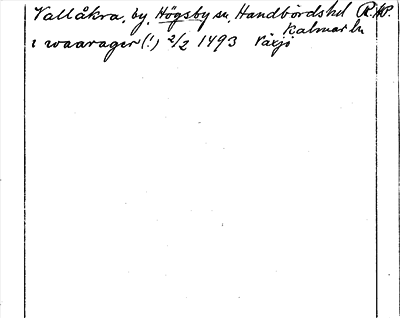 Vallåkra, by, Högsby sn, Handbördshd R.AP.
Kalmar ln
i waarager (!) 2/2 1493 Växjö